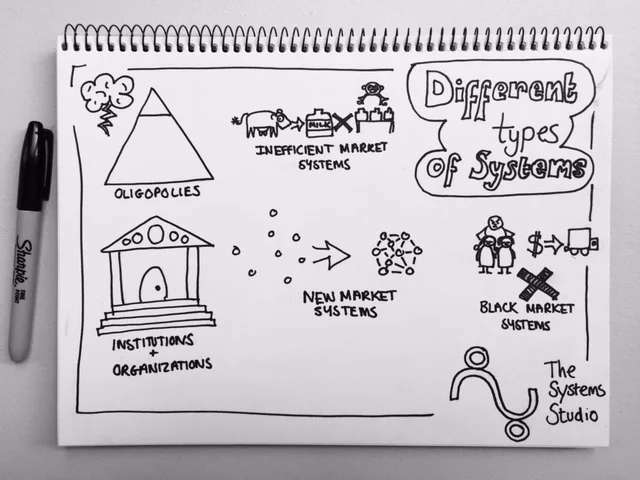 Different
types
Of Systems
MILK
INEFFICIENT MARKET
SYSTEMS
OLIGOPOLIES
NEW MARKET
SYSTEMS
$
BLACK MARKET
SYSTEMS
INSTITUTIONS
+
ORGANIZATIONS
The
Systems
Studio
Sharpie
FINE POINT